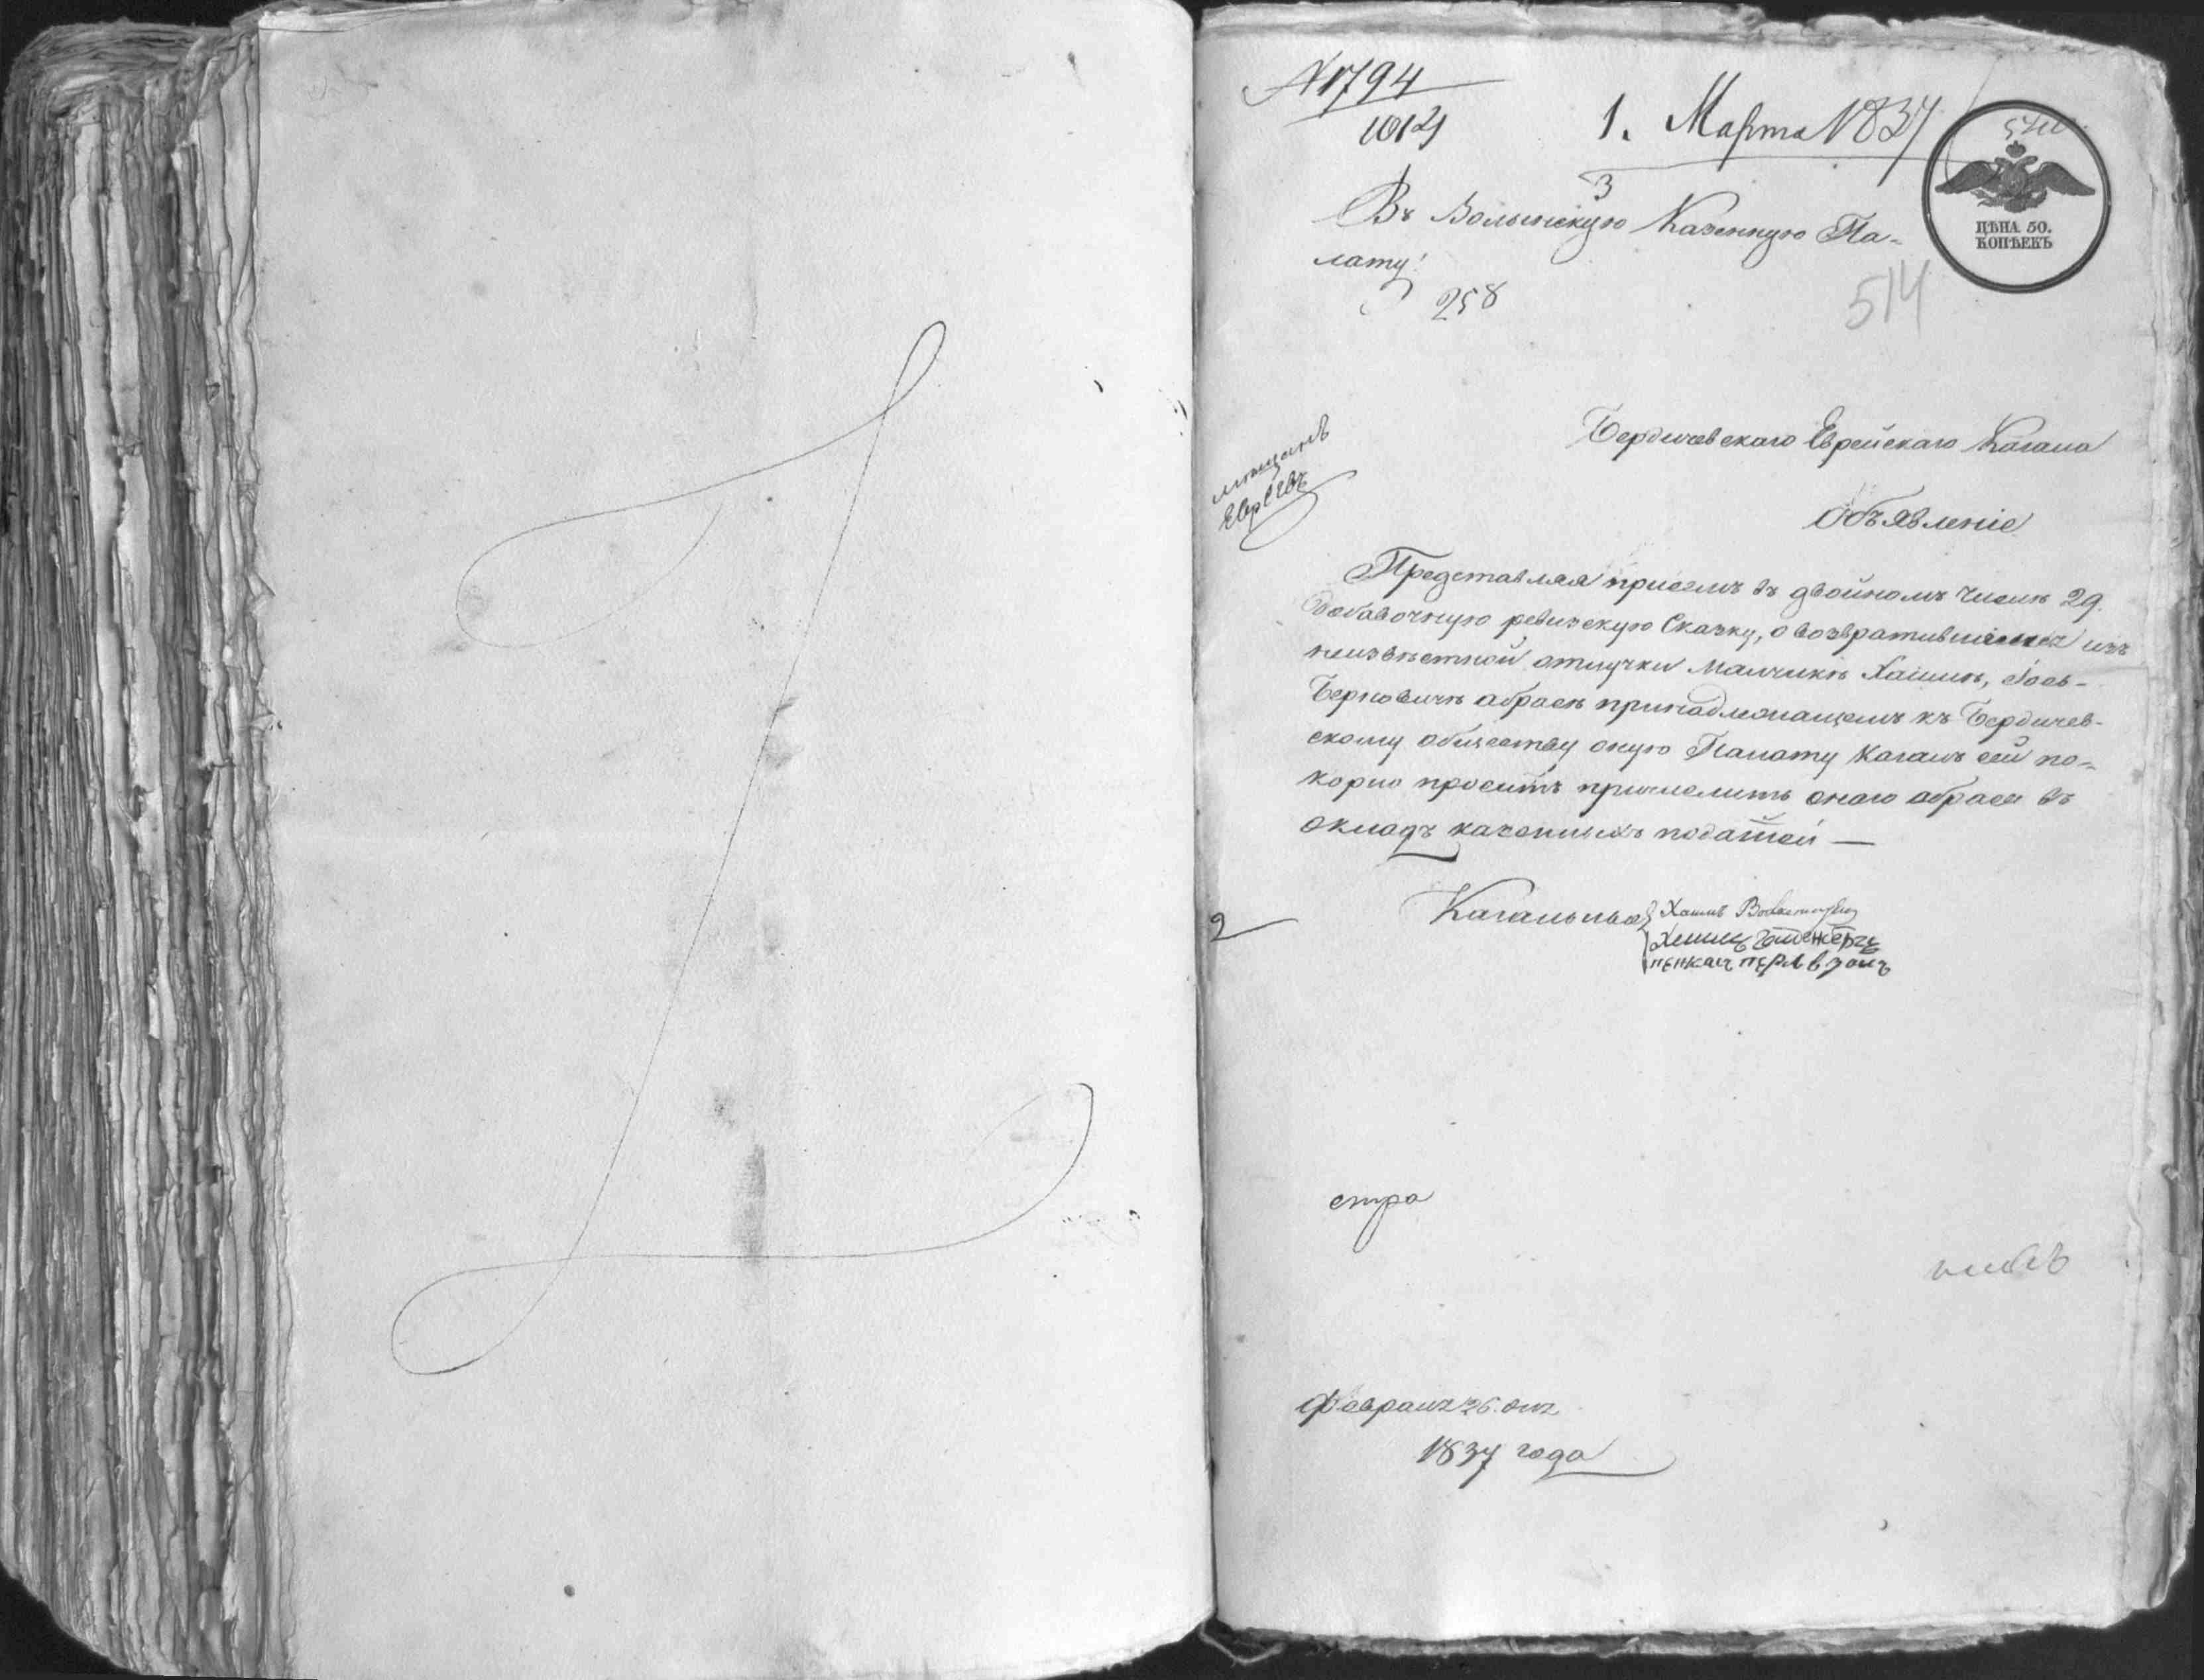 № 1794
1. Марта 1837
ЦѢНА 50.
КОПѢЕКЪ
3
Въ Волынскую Казенную Па-
лату!
258
514
Бердичевскаго Еврейскаго Кагала
мещанъ
Евреевъ
Объявленіе
Представляя присемъ въ двойномъ числѣ 29.
добавочную ревизскую Сказку, о возвратившемся изъ
неизвѣстной отлучки Мальчикѣ Хаимѣ, Іось-
Берковичѣ абрасѣ принадлежащемъ къ Бердичев-
скому обществу оную Палату Кагалъ сей по-
корно проситъ причислить онаго абраса въ
окладъ казенныхъ податей —
Кагальные Хаимъ
2
стра
Февраля 26. дня
1837 года